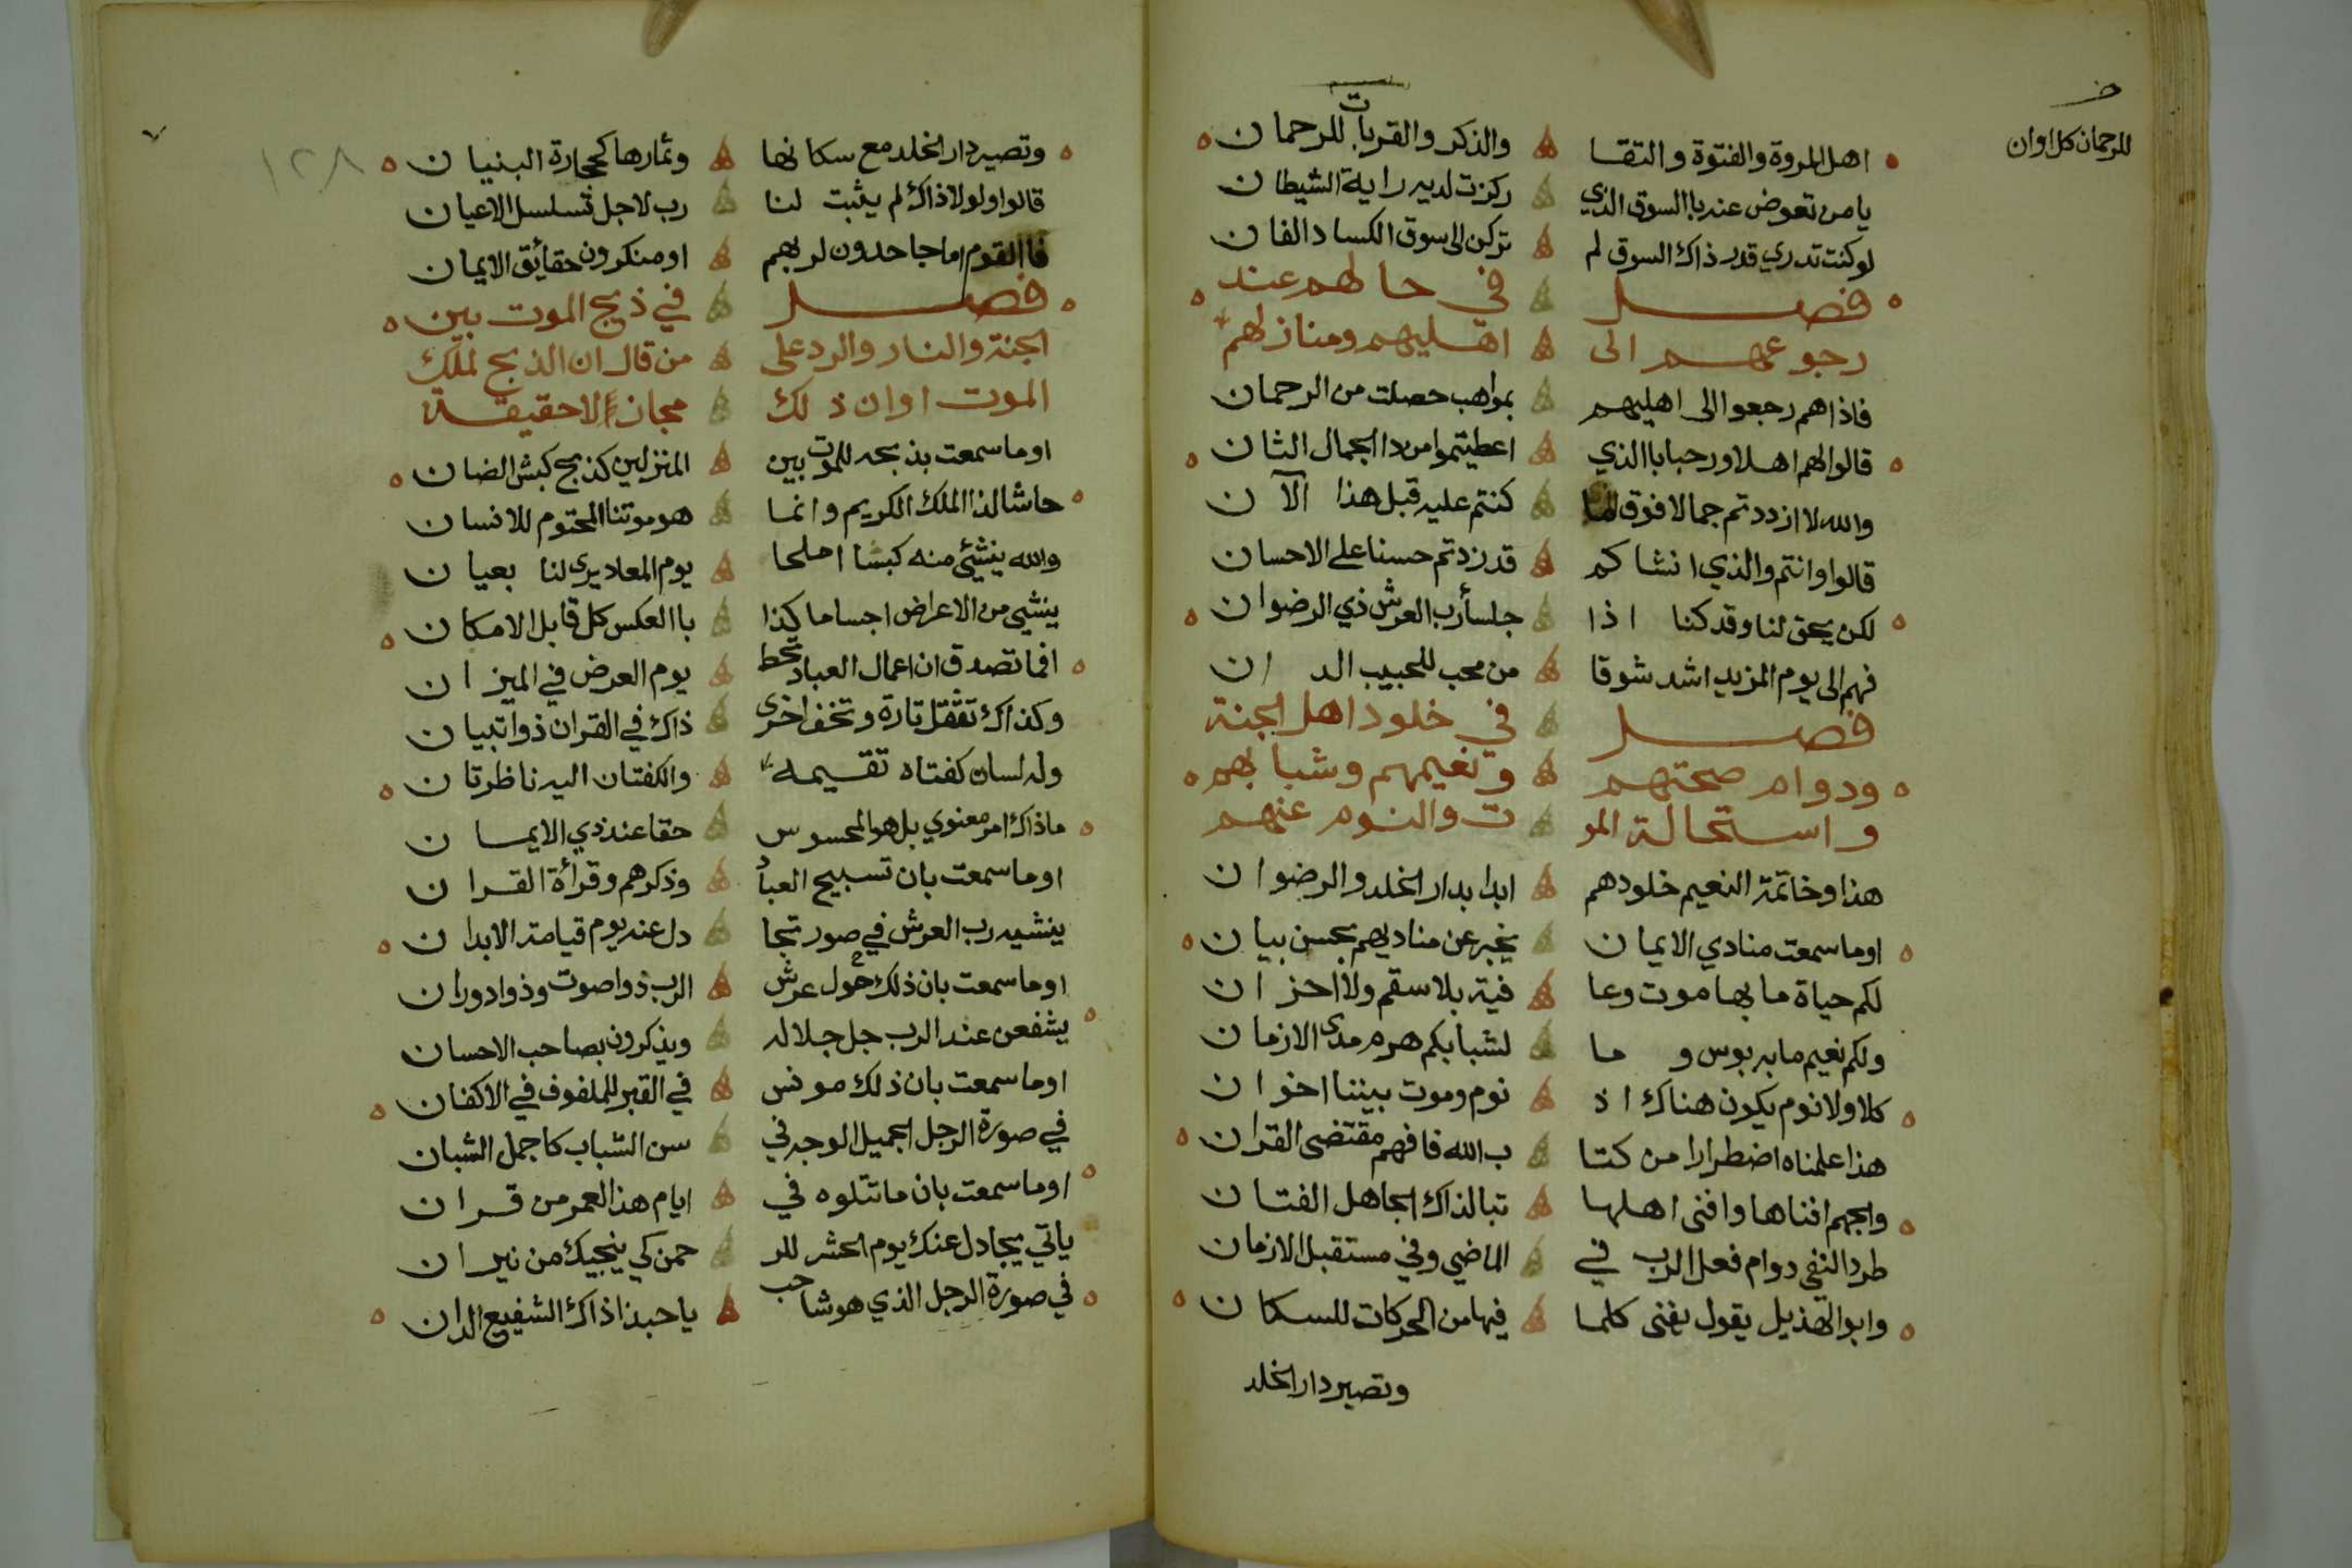 اهل المروة والفتوة والتقا والذكر والقربات للرحمان
للرحمان كل اوان
يا من تعوض عنه باالسوق الذي ركزت لديه راية الشيطان
لو كنت تدري قدر ذاك السوق لم تركن الى سوق الكساد الفان
فصل في حالهم عند
رجوعهم الى اهليهم ومنازلهم
فاذا هم رجعوا الى اهليهم بمواهب حصلت من الرحمان
قالوا لهم اهلا ورحبا باالذي اعطيتموا من ذا الجمال الثان
والله لا ازددتم جمالا فوق ما كنتم عليه قبل هذا الآن
قالوا وانتم والذي انشاكم قد زدتم حسنا على الاحسان
لكن يحق لنا وقد كنا اذا جلسأ رب العرش ذي الرضوان
فهم الى يوم المزيد اشد شوقا من محب للحبيب الدان
فصل في خلود اهل الجنة
ودوام صحتهم ونعيمهم وشبابهم
واستحالة المو ت والنوم عنهم
هذا وخاتمة النعيم خلودهم ابدا بدار الخلد والرضوان
اوما سمعت منادي الايمان يخبر عن مناديهم بحسن بيان
لكم حياة ما بها موت وعا فية بلا سقم ولا احزان
ولكم نعيم ما به بوس وما لشبابكم هرم مدى الازمان
كلا ولا نوم يكون هناك اذ نوم وموت بيننا اخوان
هذا علمناه اضطرارا من كتا ب الله فافهم مقتضى القران
والجهم افناها وافنى اهلها تبا لذاك الجاهل الفتان
طردا لنفي دوام فعل الرب في الماضي وفي مستقبل الازمان
وابو الهذيل يقول يفنى كلما فيها من الحركات للسكان
وتصير دار الخلد
١٢٨
وتصير دار الخلد مع سكانها وثمارها كحجارة البنيان
قالوا ولولا ذاك لم يثبت لنا رب لاجل تسلسل الاعيان
فاالقوم اما جاحدون لربهم او منكرون حقائق الايمان
فصل في ذبح الموت بين
الجنة والنار والرد على من قال ان الذبح لملك
الموت او ان ذلك مجاز لا حقيقة
اوما سمعت بذبحه للموت بين المنزلين كذبح كبش الضان
حاشا لذا الملك الكريم وانما هو موتنا المحتوم للانسان
والله ينشئ منه كبشا املحا يوم المعاد يرى لنا بعيان
ينشي من الاعراض اجساما كذا باالعكس كل قابل الامكان
افما تصدق ان اعمال العباد تحط يوم العرض في الميزان
وكذاك تثقل تارة وتخف اخرى ذاك في القران ذو اتبيان
وله لسان كفتاه تقيمه والكفتان اليه ناظرتان
ماذاك امر معنوي بل هو المحسوس حقا عند ذي الايمان
اوما سمعت بان تسبيح العباد وذكرهم وقرأة القران
ينشيه رب العرش في صور تجا دل عنه يوم قيامة الابدان
اوما سمعت بان ذلك حول عرش الرب ذو اصوت وذو ادوران
يشفعن عند الرب جل جلاله ويذكرون بصاحب الاحسان
اوما سمعت بان ذلك مونس في القبر للملفوف في الاكفان
في صورة الرجل الجميل الوجه في سن الشباب كاجمل الشبان
اوما سمعت بان ما تتلوه في ايام هذا العمر من قران
ياتي يجادل عنك يوم الحشر للر حمن كي ينجيك من نيران
في صورة الرجل الذي هو شاحب ياحبذا ذاك الشفيع الدان